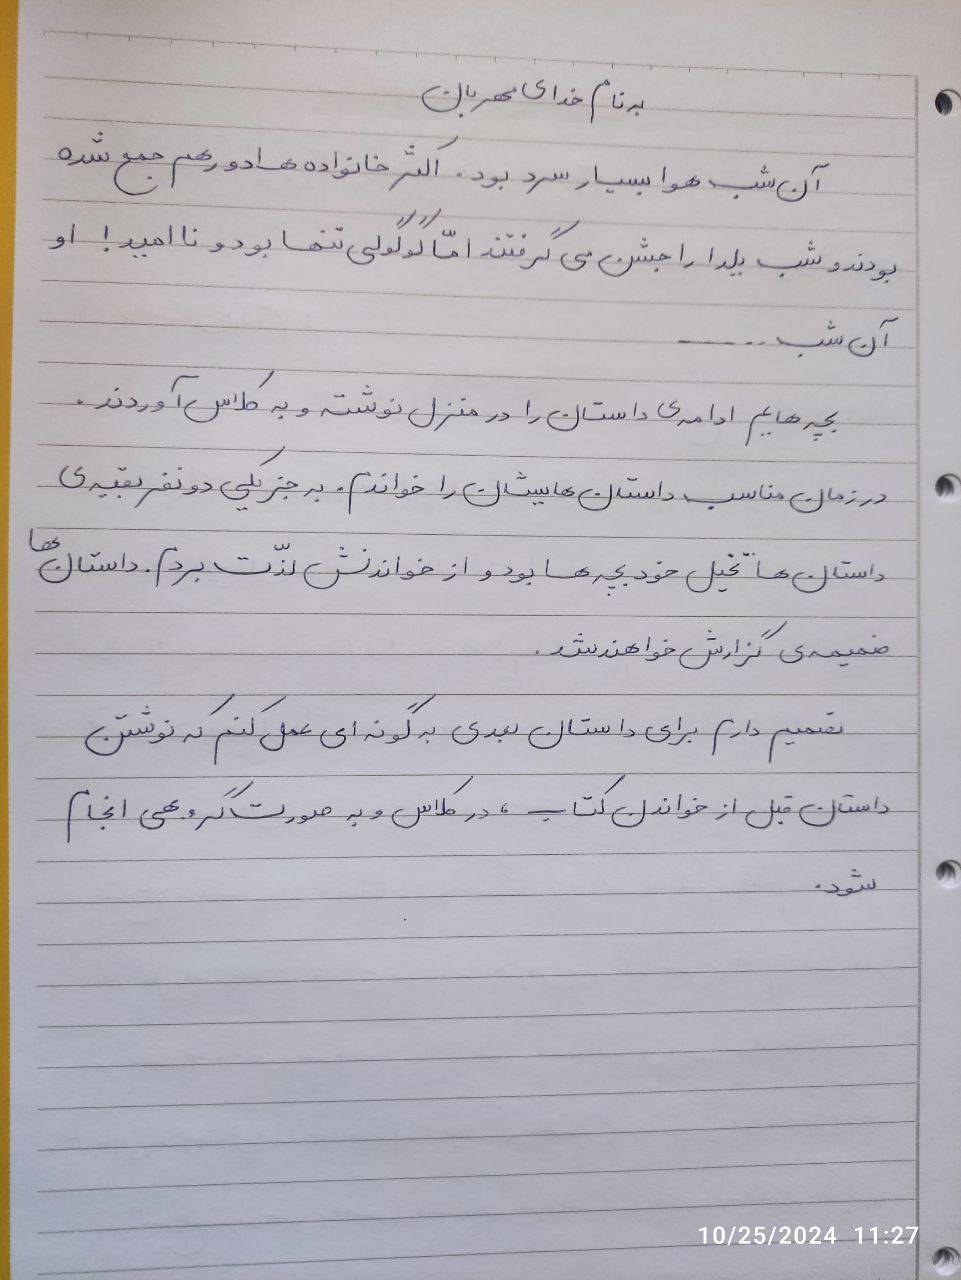 به نام خدای مهربان
آن شب هوا بسیار سرد بود. اکثر خانواده ها دور هم جمع شده
بودند و شب یلدا را جشن می گرفتند امّا "گوگولی" تنها بود و نا امید! او
آن شب ......
بچه هایم ادامه ی داستان را در منزل نوشته و به کلاس آوردند.
در زمان مناسب داستان هایشان را خواندم. به جز یکی دو نفر بقیه ی
داستان ها تخیّل خود بچه ها بود و از خواندنش لذّت بردم. داستان ها
ضمیمه ی گزارش خواهند شد.
تصمیم دارم برای داستان بعدی به گونه ای عمل کنم که نوشتن
داستان قبل از خواندن کتاب، در کلاس و به صورت گروهی انجام
شود.
10/25/2024 11:27